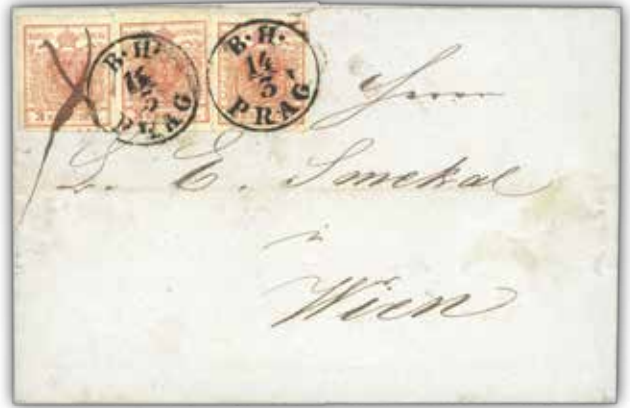 B. H.
14
3
PRAG
B. H.
14
3
PRAG
Herrn
E. Smekal
in
Wien